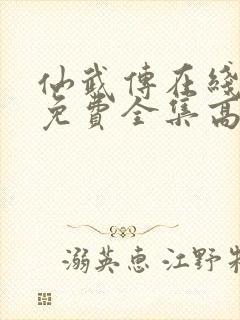 仙武傳在綫
免費全集高
溺英惠 江野